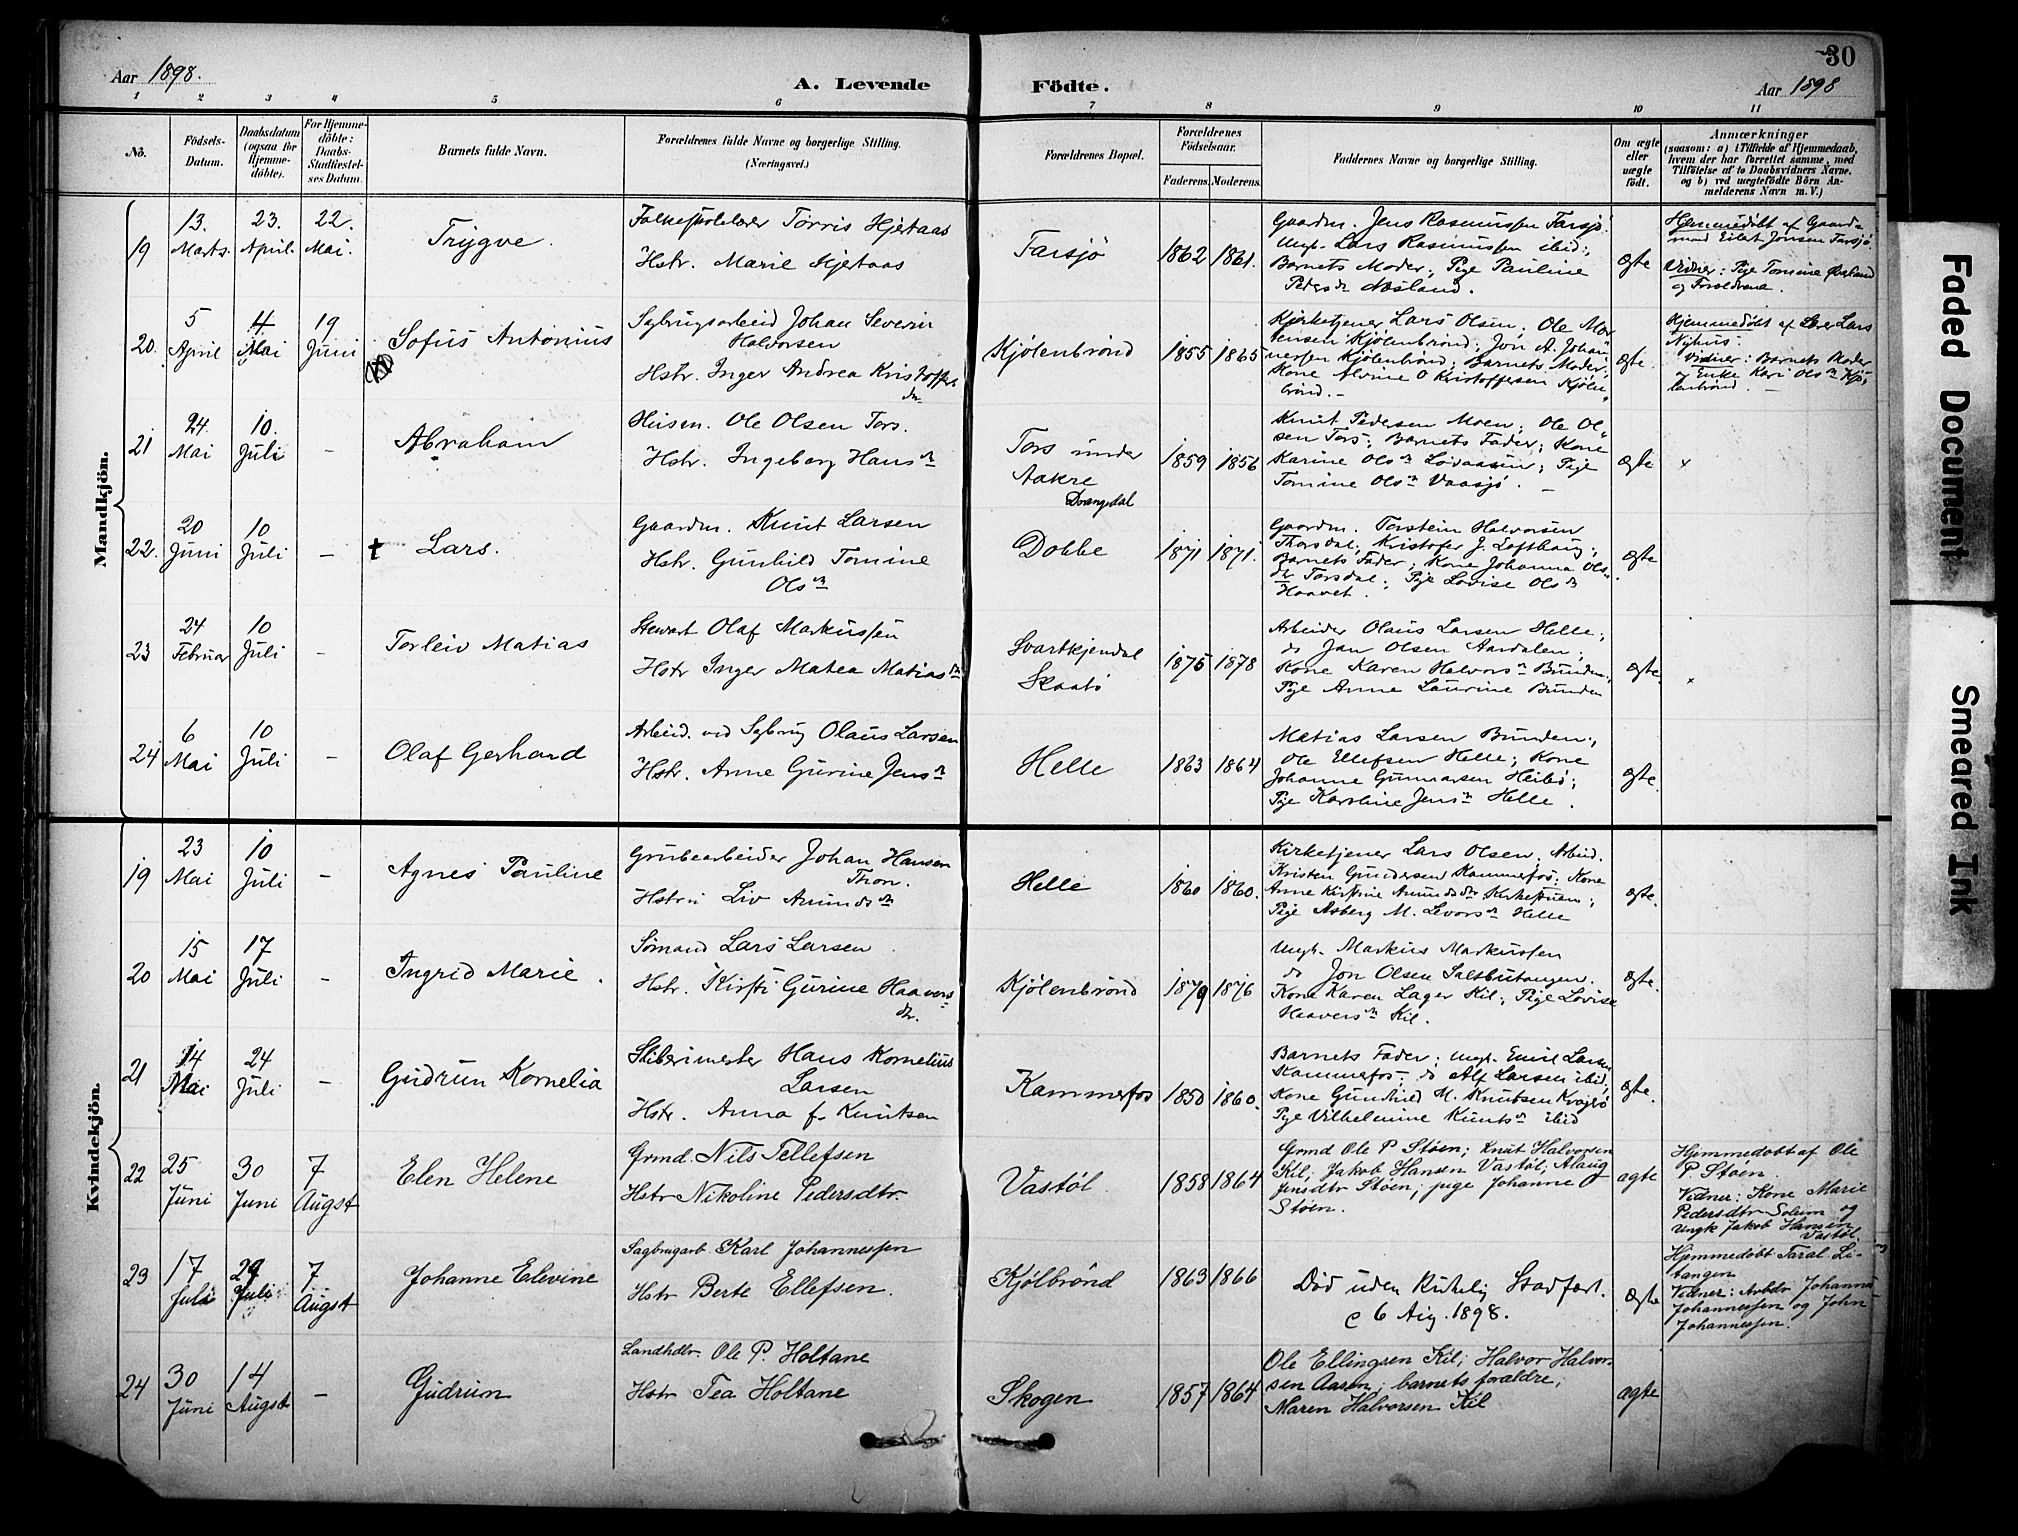 30
Aar 1898.
A. Levende
Födte.
Aar 1898
1 2 3 4 5 6 7 8 9 10 11
No.
Födsels-Datum.
Daabsdatum (ogsaa for Hjemme-döbte).
For Hjemme-döbte: Daabs-Stadfæstel-ses Datum.
Barnets fulde Navn.
Forældrenes fulde Navne og borgerlige Stilling.
(Næringsvei.)
Forældrenes Bopæl.
Forældrenes Födselsaar.
Faderens. Moderens.
Faddernes Navne og borgerlige Stilling.
Om ægte eller uægte födt.
Anmærkninger
(saasom: a) i Tilfælde af Hjemmedaab,
hvem der har forrettet samme, med
Tilföielse af to Daabsvidners Navne,
og b) ved uægtefödte Börn An-
melderens Navn m. V.)
Mandkjön.
19
13. Marts.
23. April.
22. Mai.
Trygve.
Folkeskolelærer Tørris Hjetaas
Hstr. Marie Hjetaas
Farsjø
1862
1861.
Gaardm. Jens Rasmussen Farsjø.
Ungk. Lars Rasmussen ibid;
Barnets Moder; Pige Pauline
Pedersdr Næsland.
ægte
Hjemmedøbt af Gaard-
mand Eilet Jonsen Farsjø
Vidner: Pige Tomine
og Forældrene.
20.
5 April
4 Mai
19 Juni
Sofus Antonius
Sagbrugsarbeid Johan Severin
Halvorsen
Hstr. Inger Andrea Kristoffers
dr.
Kjølenbrønd
1855
1865
Kirketjener Lars Olsen; Ole Mor
tensen Kjølenbrønd; Jon A. Johan
nessen Kjølenbrønd; Barnets Moder;
Kone Alvine O Kristoffersen Kjølen
brønd.
ægte.
Hjemmedøbt af Lærer Lars
Nyhus.
Vidner: Barnets Moder
og Enke Kari Olsdr Kjø
lenbrønd
21
24. Mai
10. Juli
-
Abraham
Husm. Ole Olsen Tors.
Hstr. Ingeborg Hansdr
Tors under
Aakre
Drangedal
1859
1856
Knut Pedersen Moen; Ole Ol
sen Tors; Barnets Fader; Kone
Karine Olsdr Løvaasen; Pige
Tomine Olsdr Vaasjø.
ægte
x
22.
20 Juni
10 Juli
-
† Lars.
Gaardm. Knut Larsen
Hstr. Gunhild Tomine
Olsdr
Dobbe
1871
1871.
Gaardm. Torstein Halvorsen
Thorsdal; Kristofer J. Lofthaug;
Barnets Fader; Kone Johanna Ols
dr Torsdal; Pige Lovise Olsdr
Haavet.
ægte.
23
24 Februar
10 Juli
-
Torleiv Matias
Stewart Olaf Markussen
Hstr Inger Matea Matiasdr
Svartkjendal
Skaatø
1875
1878
Arbeider Olaus Larsen Helle;
do Jan Olsen Aardalen;
Kone Karen Halvorsdr Bunden;
Pige Anne Laurine Bunden
ægte.
x
24
6 Mai
10 Juli
-
Olaf Gerhard
Arbeid. ved Sagbrug Olaus Larsen
Hstr. Anne Gurine Jensdr
Helle
1863
1864
Matias Larsen Bunden;
Ole Ellefsen Helle; Kone
Johanne Gunnarsen Heibø;
Pige Karoline Jensdr Helle.
ægte.
Kvindekjön.
19
23 Mai
10 Juli
-
Agnes Pauline
Grubearbeider Johan Hansen
Thon.
Hstru Liv Amundsdr
Helle
1860
1860.
Kirketjener Lars Olsen; Arbeid.
Kristen Gundersen Kammerfos; Kone
Anne Kirstine Amundsdr Kirkestuen;
Pige Asberg M. Levorsdr Helle
ægte.
20
15 Mai
17 Juli
-
Ingrid Marie.
Sømand Lars Larsen
Hstr. Kirsti Gurine Haavers
dr.
Kjølenbrønd
1879
1876
Ungk. Markus Markussen
do Jon Olsen Saltbutangen.
Kone Karen Lager Kil; Pige Lovise
Haaversdr Kil.
ægte.
21
14 Mai
24 Juli
-
Gudrun Kornelia
Sliberimester Hans Kornelius
Larsen
Hstr. Anna f. Knutsen
Kammerfos
1850
1860.
Barnets Fader; Ungk. Emil Larsen
Kammerfos; do Alf Larsen ibid;
Kone Gunhild M. Knutsen
Pige Vilhelmine Knutsdr ibid
ægte.
22
25 Juni
30 Juni
7 Augst
Elen Helene
Grmd. Nils Tellefsen
Hstr Nikoline Pedersdtr.
Vastøl
1858
1864
Grmd Ole P Støen; Knut Halvorsen
Kil; Jakob Hansen Vastøl; Alaug
Jensdtr Støen; pige Johanne
Støen.
ægte
Hjemmedøbt af Ole
P. Støen
Vidner: Kone Marie
Pedersdtr Soleim og
Ungk Jakob Hansen
Vastøl.
23
17 Juli
29 Juli
7 Augst
Johanne Elevine
Sagbrugarb. Karl Johannessen
Hstr Berte Ellefsen.
Kjølbrønd
1863
1866
Død uden kirkelig Stadfæst.
6 Aug. 1898.
ægte
Hjemmedøbt Taral Li-
tangen
Vidner: Arbdr Johannes
Johannessen og John
Johannessen.
24
30 Juni
14 Augst
-
Gudrun
Landhdlr. Ole P. Holtane
Hstr Tea Holtane
Skogen
1857
1864
Ole Ellingsen Kil; Halvor Halvor
sen Aasen; barnets forældre;
Maren Halvorsen Kil
ægte
Faded Document
Smeared Ink